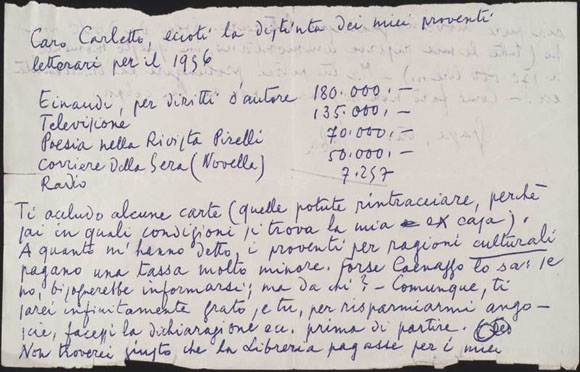 Caro Carletto eccoti la distinta dei miei proventi
letterari per il 1956
Einaudi, per diritti d'autore 180.000.—
Televisione 135.000.—
Poesia nella Rivista Pirelli 70.000.—
Corriere della Sera (Novella) 50.000.—
Radio 7.257
Ti accludo alcune carte (quelle potute rintracciare, perché
sai in quali condizioni si trova la mia ex casa).
A quanto m'hanno detto, i proventi per ragioni culturali
pagano una tassa molto minore. Forse lo sa: se
no, bisognerebbe informarsi; ma da chi? — Comunque, ti
sarei infinitamente grato, se tu, per risparmiarmi ango-
scie, facessi la dichiarazione ecc. prima di partire.
Non troverei giusto che la Libreria pagasse per i miei